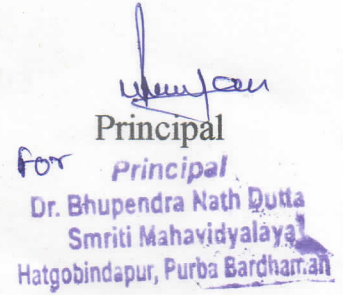 Principal
For Principal
Dr. Bhupendra Nath Dutta
Smriti Mahavidyalaya
Hatgobindapur, Purba Bardhaman